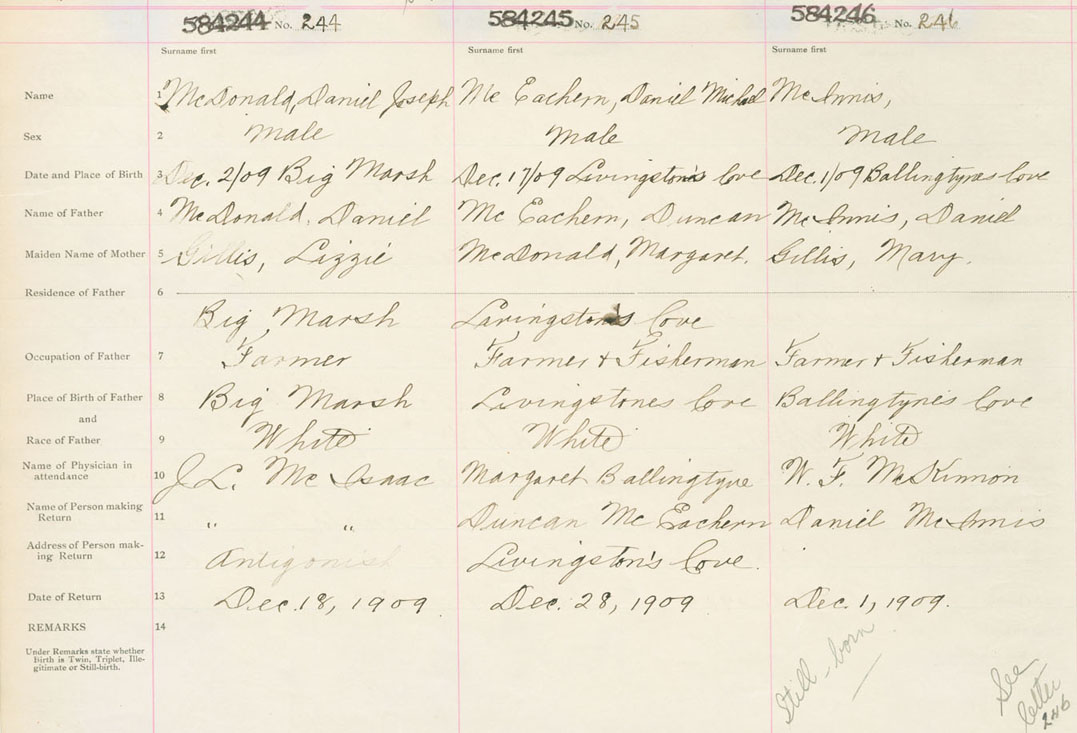 584244 No. 244 584245 No. 245 584246 No. 246
Surname first Surname first Surname first
Name 1 McDonald, Daniel Joseph Mc Eachern, Daniel Michael McInnis,
Sex 2 Male Male Male
Date and Place of Birth 3 Dec. 2/09 Big Marsh Dec. 17/09 Livingston's Cove Dec. 1/09 Ballingtynes Cove
Name of Father 4 McDonald. Daniel Mc Eachern, Duncan McInnis, Daniel
Maiden Name of Mother 5 Gillis, Lizzie McDonald, Margaret. Gillis, Mary.
Residence of Father 6
Big Marsh Livingston's Cove
Occupation of Father 7 Farmer Farmer + Fisherman Farmer + Fisherman
Place of Birth of Father 8 Big Marsh Livingstones Cove Ballingtynes Cove
and
Race of Father 9 White White White
Name of Physician in
attendance 10 J. L. Mc Isaac Margaret Ballingtyne W. F. McKinnon
Name of Person making
Return 11 " " Duncan Mc Eachern Daniel McInnis
Address of Person mak-
ing Return 12 Antigonish Livingston's Cove.
Date of Return 13 Dec. 18, 1909 Dec. 28, 1909 Dec. 1, 1909.
REMARKS 14
Under Remarks state whether
Birth is Twin, Triplet, Ille-
gitimate or Still-birth.
Still-born
See
letter
246